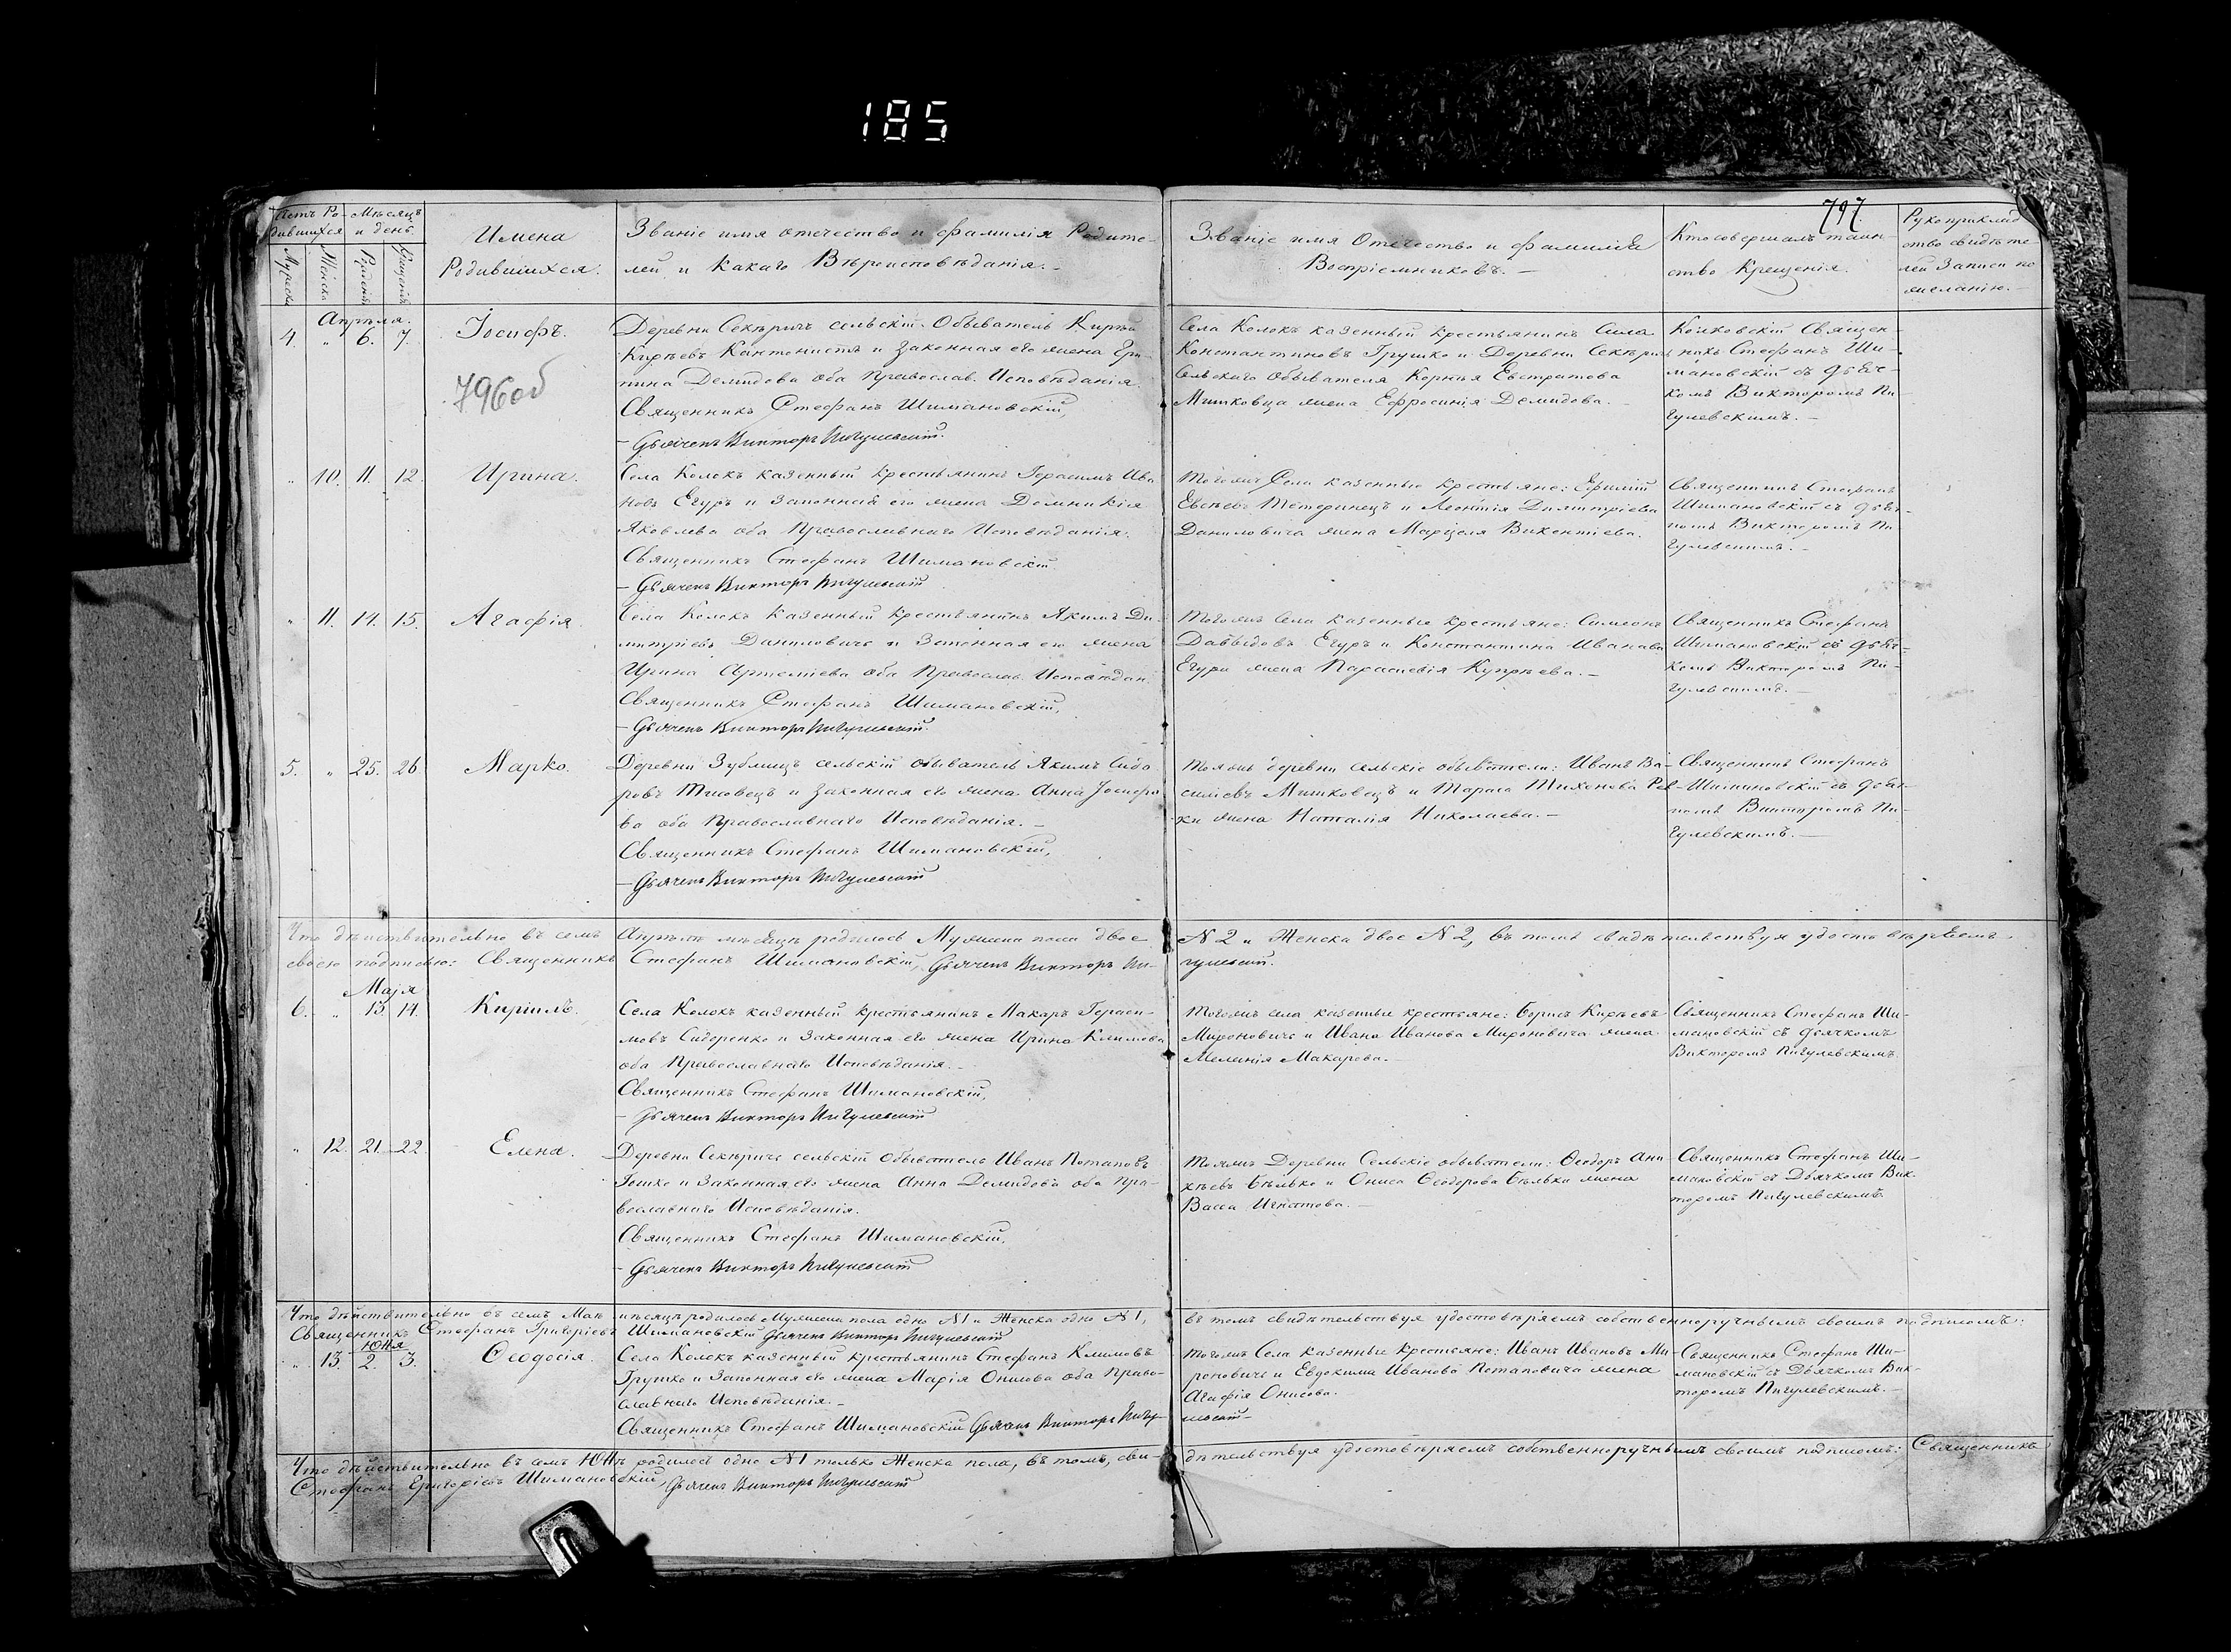 185
797.
Счетъ Ро- Мѣсяцъ
дившихся и день.
Мужеска Женска Рожденія Крещенія
Имена
Родившихся.
Званіе имя отечество и фамилія Родите-
лей и какаго Вѣроисповѣданія.
Званіе имя Отечество и фамилія
Воспріемниковъ.
Кто совершалъ таин-
ство Крещенія.
Рукоприклад
ство свидѣте
лей Записи по
желанію.
Апрѣля.
4. „ 6. 7. Іосифъ.
796об
Деревни Секѣричъ сельскій Обыватель Кирѣй
Кирѣевъ Кантонистъ и Законная его жена Ири-
пина Демидова оба Православ. Исповѣданія.
Священникъ Стефанъ Шимановскій,
– Дьячекъ Викторъ Пигулевскій.
Села Колокъ казенный крестьянинъ Сила
Константиновъ Грушко и Деревни Секѣричъ
Сельскаго Обывателя Корнѣя Евстратова
Мишковца жена Ефросинія Демидова.
Колковскій Священ-
никъ Стефанъ Ши-
мановскій съ дьяч-
комъ Викторомъ Пи-
гулевскимъ.
„ 10. 11. 12. Ирина.
Села Колокъ казенный крестьянинъ Герасимъ Ива
новъ Егуръ и Законная его жена Домникія
Яковлева оба Православнаго Исповѣданія.
Священникъ Стефанъ Шимановскій
– Дьячекъ Викторъ Пигулевскій
Тогожъ Села казенные крестьяне: Ефимій
Евсѣевъ Тетеринецъ и Леонтія Димитріева
Даниловича жена Марцеля Викентіева.
Священникъ Стефанъ
Шимановскій съ дьяч-
комъ Викторомъ Пи
гулевскимъ.
„ 11. 14. 15. Агафія
Села Колокъ казенный крестьянинъ Якимъ Ди-
митріевъ Даниловичъ и Законная его жена
Ирина Артеміева оба Православ. Исповѣдан.
Священникъ Стефанъ Шимановскій,
– Дьячекъ Викторъ Пигулевскій.
Тогожъ Села казенные крестьяне: Симеонъ
Давыдовъ Егуръ и Константина Иванова
Егура жена Параскевія Купрѣева.
Священникъ Стефанъ
Шимановскій съ дьяч-
комъ Викторомъ Пи-
гулевскимъ.
5. „ 25. 26. Марко.
Деревни Зублищъ сельскій обыватель Якимъ Сидо
ровъ Тисовецъ и Законная его жена Анна Іосифо
ва оба Православнаго Исповѣданія.
Священникъ Стефанъ Шимановскій,
– Дьячекъ Викторъ Пигулевскій
Тояжъ деревни сельскіе обыватели: Иванъ Ва-
силіевъ Мишковецъ и Тараса Тихонова Рев-
ки жена Наталія Николаева.
Священникъ Стефанъ
Шимановскій съ дьяч-
комъ Викторомъ Пи-
гулевскимъ.
Что дѣйствительно въ семъ Апрѣлѣ мѣсяцѣ родилось Мужеска пола двое N 2 и Женска двое N 2, въ томъ свидѣтельствуя удостовѣряемъ
своею подписью: Священникъ Стефанъ Шимановскій, Дьячекъ Викторъ Пи-
гулевскій.
Маія
6. „ 13. 14. Кириллъ.
Села Колокъ казенный крестьянинъ Макаръ Гераси-
мовъ Сидоренко и Законная его жена Ирина Климова
оба Православнаго Исповѣданія.
Священникъ Стефанъ Шимановскій,
– Дьячекъ Викторъ Пигулевскій
Тогожъ села казенные крестьяне: Борисъ Кирѣевъ
Мироновичъ и Ивана Иванова Мироновича жена
Меланія Макарова.
Священникъ Стефанъ Ши-
мановскій съ дьячкомъ
Викторомъ Пигулевскимъ
„ 12. 21. 22. Елена.
Деревни Секѣричъ сельскій Обыватель Иванъ Потаповъ
Гошко и Законная его жена Анна Демидова оба Пра-
вославнаго Исповѣданія.
Священникъ Стефанъ Шимановскій,
– Дьячекъ Викторъ Пигулевскій
Тояжъ Деревни Сельскіе обыватели: Ѳеодоръ Ани
кѣевъ Бѣлько и Ониса Ѳеодорова Бѣльки жена
Васса Игнатова.
Священникъ Стефанъ Ши-
мановскій съ Дьячкомъ Вик-
торомъ Пигулевскимъ
Что дѣйствительно въ семъ Маѣ мѣсяцѣ родилось Мужеска пола одно N 1 и Женска одно N 1, въ томъ свидѣтельствуя удостовѣряемъ собственноручнымъ своимъ подписомъ:
Священникъ Стефанъ Григоріевъ Шимановскій Дьячекъ Викторъ Пигулевскій
Юня
„ 13. 2. 3. Ѳеодосія.
Села Колокъ казенный крестьянинъ Стефанъ Климовъ
Грушко и Законная его жена Марія Онисова оба Право-
славнаго Исповѣданія.
Священникъ Стефанъ Шимановскій Дьячекъ Викторъ Пигу-
левскій
Тогожъ Села казенные крестьяне: Иванъ Ивановъ Ми-
роновичъ и Евдокима Иванова Потаповича жена
Агафія Онисова.
Священникъ Стефанъ Ши-
мановскій съ Дьячкомъ Вик-
торомъ Пигулевскимъ.
Что дѣйствительно въ семъ Юнѣ родилось одно N 1 только Женска пола, въ томъ, сви-
дѣтельствуя удостовѣряемъ собственноручнымъ своимъ подписомъ: Священникъ
Стефанъ Григоріевъ Шимановскій, Дьячекъ Викторъ Пигулевскій